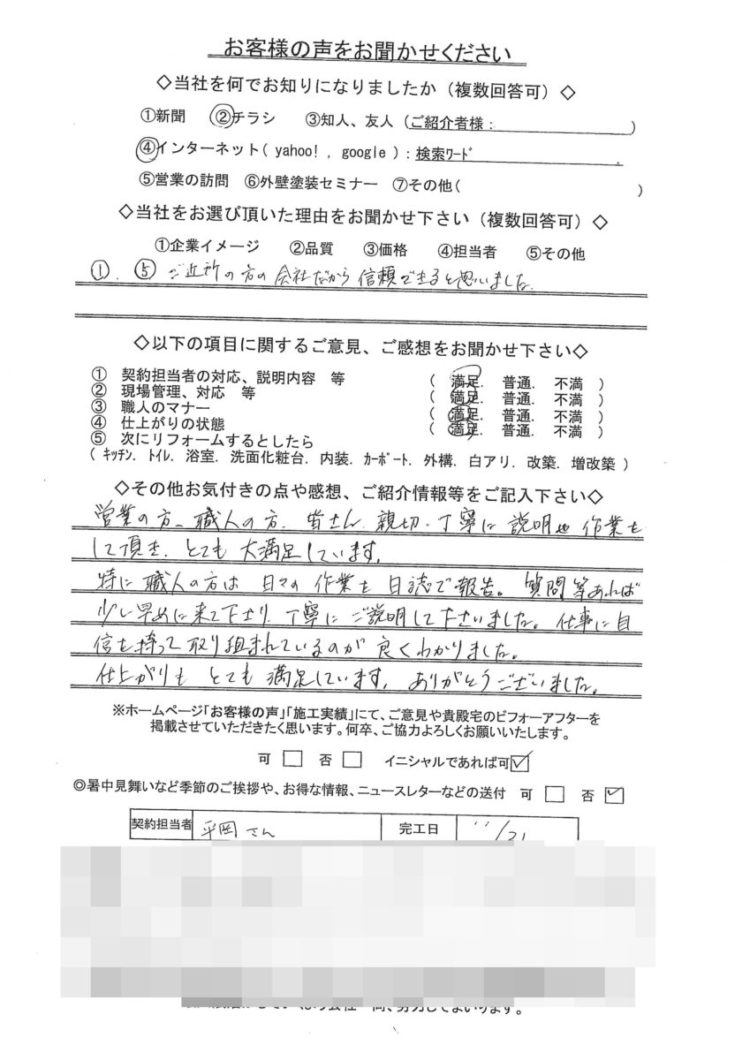 お客様の声をお聞かせください
◇当社を何でお知りになりましたか（複数回答可）◇
①新聞 ②チラシ ③知人、友人（ご紹介者様： ）
④インターネット( yahoo! , google )：検索ﾜｰﾄﾞ .
⑤営業の訪問 ⑥外壁塗装セミナー ⑦その他( )
◇当社をお選び頂いた理由をお聞かせ下さい（複数回答可）◇
①企業イメージ ②品質 ③価格 ④担当者 ⑤その他
①. ⑤ ご近所の方の会社だから信頼できると思いました.
◇以下の項目に関するご意見、ご感想をお聞かせ下さい◇
① 契約担当者の対応、説明内容 等 （ 満足. 普通. 不満 ）
② 現場管理、対応 等 （ 満足. 普通. 不満 ）
③ 職人のマナー （ 満足. 普通. 不満 ）
④ 仕上がりの状態 （ 満足. 普通. 不満 ）
⑤ 次にリフォームするとしたら
（ ｷｯﾁﾝ. ﾄｲﾚ. 浴室. 洗面化粧台. 内装. ｶｰﾎﾟｰﾄ. 外構. 白アリ. 改築. 増改築 ）
◇その他お気付きの点や感想、ご紹介情報等をご記入下さい◇
営業の方、職人の方、皆さん親切、丁寧に説明や作業を
して頂き、とても大満足しています.
特に職人の方は日々の作業も日誌で報告。質問等あれば
少し早めに来て下さり、丁寧にご説明して下さいました。仕事に自
信を持って取り組まれているのが良くわかりました。
仕上がりもとても満足しています. ありがとうございました.
※ホームページ「お客様の声」「施工実績」にて、ご意見や貴殿宅のビフォーアフターを
掲載させていただきたく思います。何卒、ご協力よろしくお願いいたします。
可 □ 否 □ イニシャルであれば可☑
◎暑中見舞いなど季節のご挨拶や、お得な情報、ニュースレターなどの送付 可 □ 否 ☑
契約担当者 平岡さん 完工日 11/21